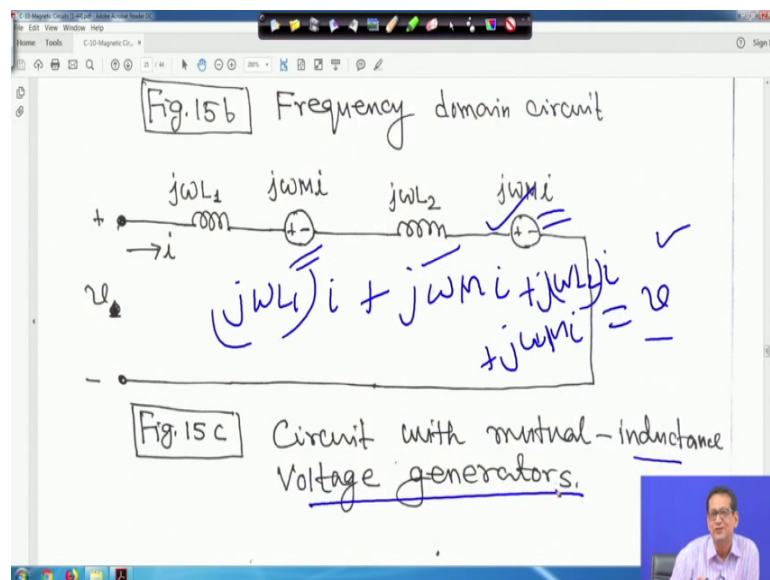 C-10-Magnetic Circuits (1-44).pdf - Adobe Acrobat Reader DC
File Edit View Window Help
Home Tools C-10-Magnetic Cir... × Sign
21 / 44 200%
Fig. 15b Frequency domain circuit
jωL₁ jωMi jωL₂ jωMi
+ → i + - + -
v
(jωL₁)i + jωMi + j(ωL₂)i
+ jωMi = v
-
Fig. 15c Circuit with mutual-inductance
Voltage generators.